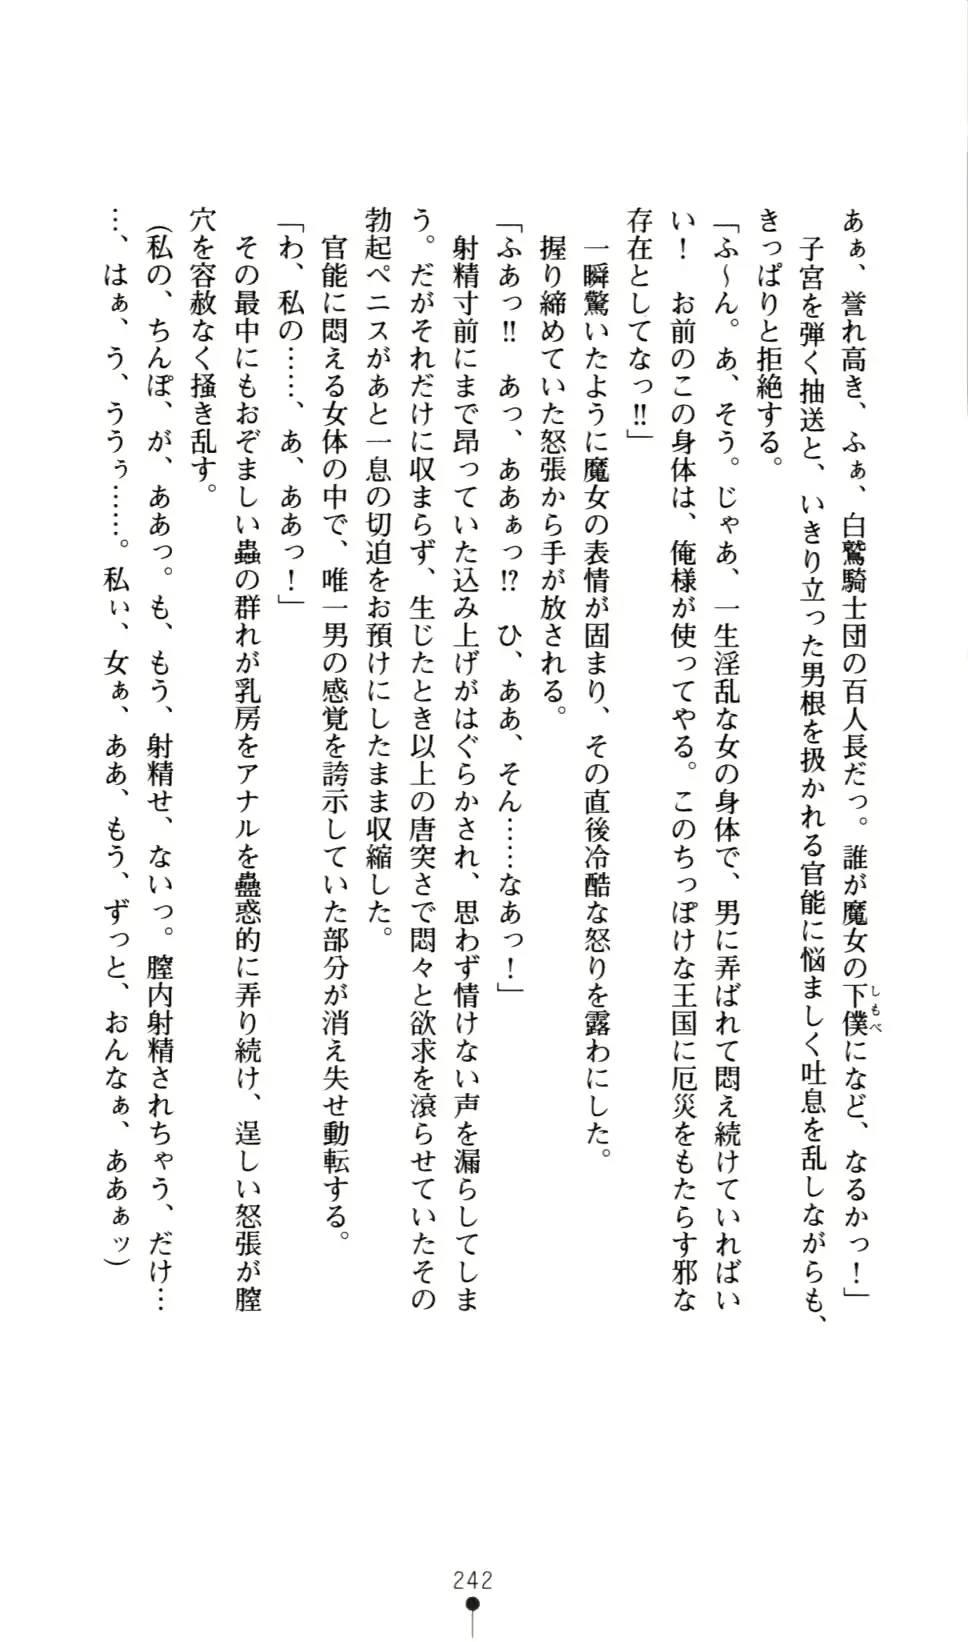 あぁ、誉れ高き、ふぁ、白鷲騎士団の百人長だっ。誰が魔女の下僕になど、なるかっ！」
しもべ
子宮を弾く抽送と、いきり立った男根を扱かれる官能に悩ましく吐息を乱しながらも、
きっぱりと拒絶する。
「ふ～ん。あ、そう。じゃあ、一生淫乱な女の身体で、男に弄ばれて悶え続けていればい
い！　お前のこの身体は、俺様が使ってやる。このちっぽけな王国に厄災をもたらす邪な
存在としてなっ!!」
一瞬驚いたように魔女の表情が固まり、その直後冷酷な怒りを露わにした。
握り締めていた怒張から手が放される。
「ふあっ!!　あっ、ああぁっ!?　ひ、ああ、そん……なあっ！」
射精寸前にまで昂っていた込み上げがはぐらかされ、思わず情けない声を漏らしてしま
う。だがそれだけに収まらず、生じたとき以上の唐突さで悶々と欲求を滾らせていたその
勃起ペニスがあと一息の切迫をお預けにしたまま収縮した。
官能に悶える女体の中で、唯一男の感覚を誇示していた部分が消え失せ動転する。
「わ、私の……、あ、ああっ！」
その最中にもおぞましい蟲の群れが乳房をアナルを蠱惑的に弄り続け、逞しい怒張が膣
穴を容赦なく掻き乱す。
(私の、ちんぽ、が、ああっ。も、もう、射精せ、ないっ。膣内射精されちゃう、だけ…
…、はぁ、う、ううぅ……。私ぃ、女ぁ、ああ、もう、ずっと、おんなぁ、ああぁッ)
242